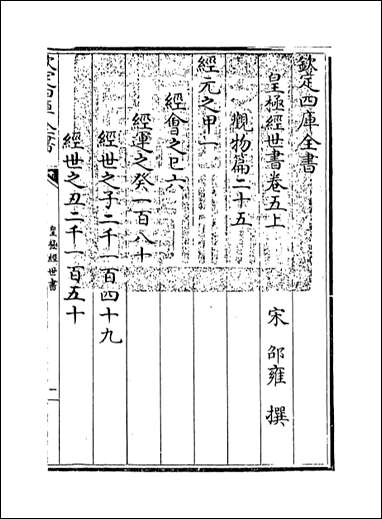 欽定四庫全書
皇極經世書卷五上
宋 邵雍 撰
觀物篇二十五
經元之甲一
經會之巳六
經運之癸一百八十
經世之子二千一百四十九
經世之丑二千一百五十
皇極經世書